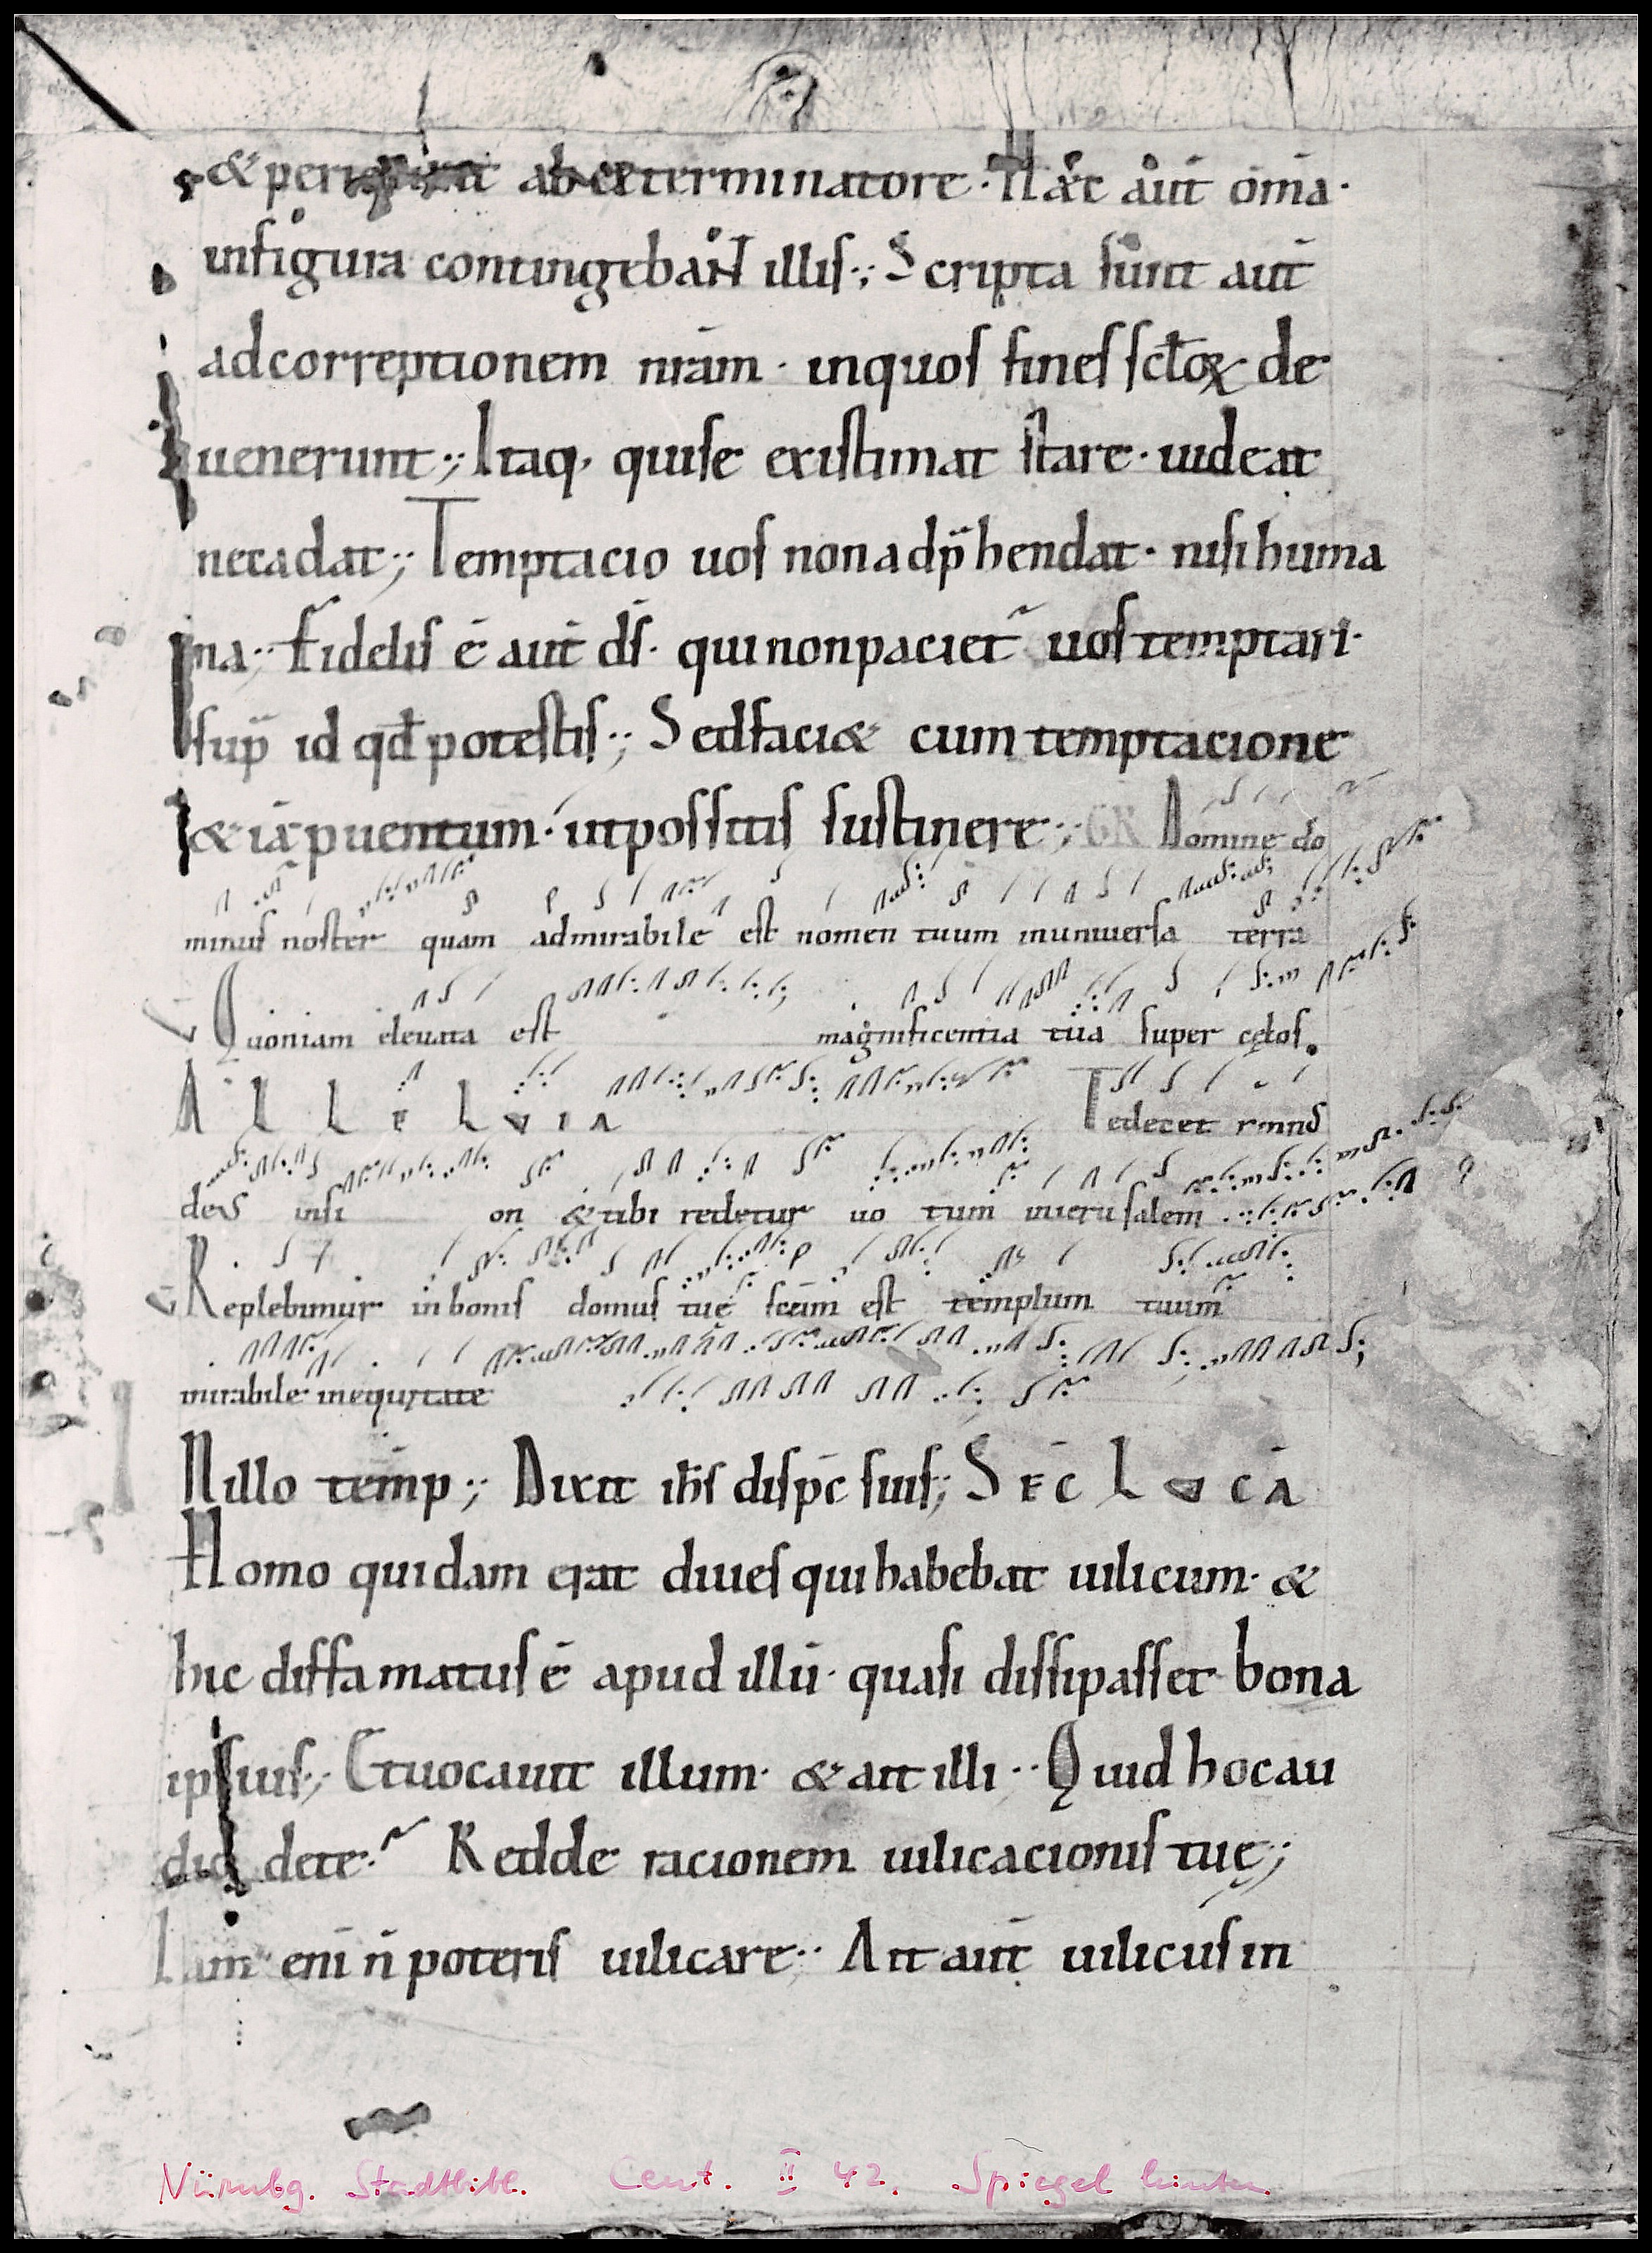 & perierunt ab exterminatore · Haec aut̄ om̄a ·
infigura contingebaNT illis ·; Scripta sunt aut̄
adcorreptionem nr̄am · inquos fines sc̄loꝝ de
uenerunt ·; Itaq· quise existimat stare · uideat
necadat ·; Temptacio uos nonadp̄hendat · nisihuma
na ·; Fidelis ē aut̄ ds̄ · quinonpaciet᷑ uostemptari ·
sup̄ id qd̄ potestis ·; Sedfaci& cum temptacione
& iā puentum · utpossitis sustinere ·; GR Domine do
minus noster quam admirabile est nomen tuum inuniuersa terra
V Quoniam eleuata est magnificentia tua super cęlos.
ALLELVIA Tedecet ymnus
deus insi on & tibi redetur uo tum inierusalem
V Replebimur inbonis domus tuę sc̄um est templum tuum
mirabile inequitate
N illo temp̄ ·; Dixit ih̄s disp̄c suis ·; SEC̄ LVCĀ
Homo quidam erat diues quihabebat uilicum · &
hic diffamatus ē apud illū · quasi dissipasset bona
ipsius ·; Etuocauit illum · & ait illi ·· Quid hocau
dio dete · Redde racionem uilicacionis tuę ·;
Iam enī n̄ poteris uilicare ·; Ait aut̄ uilicus in
Nürnbg. Stadtbibl. Cent. II 42. Spiegel hinten